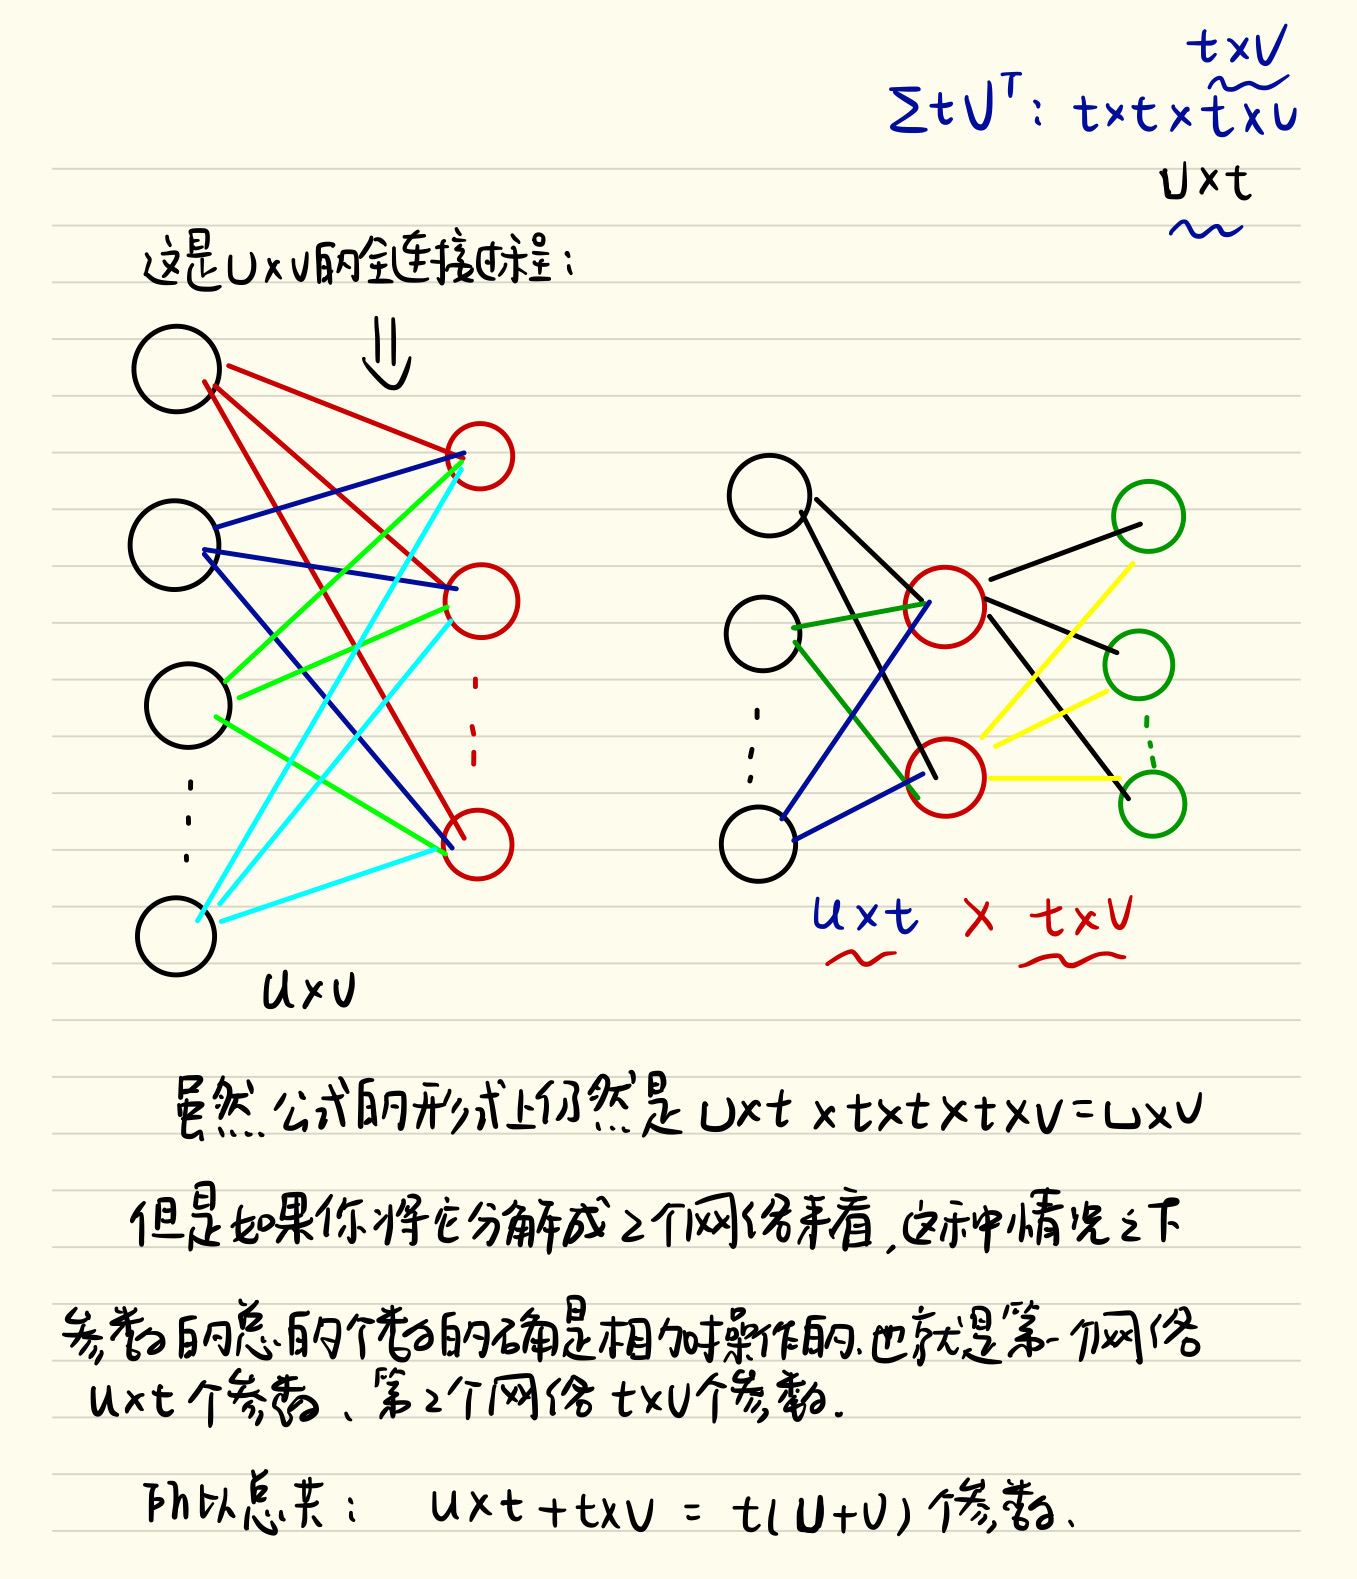 t×V
ΣtVᵀ: t×t×t×v
u×t
这是u×v的全连接过程:
u×v
u×t × t×V
虽然公式的形式上仍然是 u×t ×t×t×t×v=u×v
但是如果你将它分解成2个网络来看,这种情况之下
参数的总的个数的确是相加操作的.也就是第一个网络
u×t个参数、第2个网络t×v个参数.
所以总共: u×t+t×v = t(u+v)个参数.